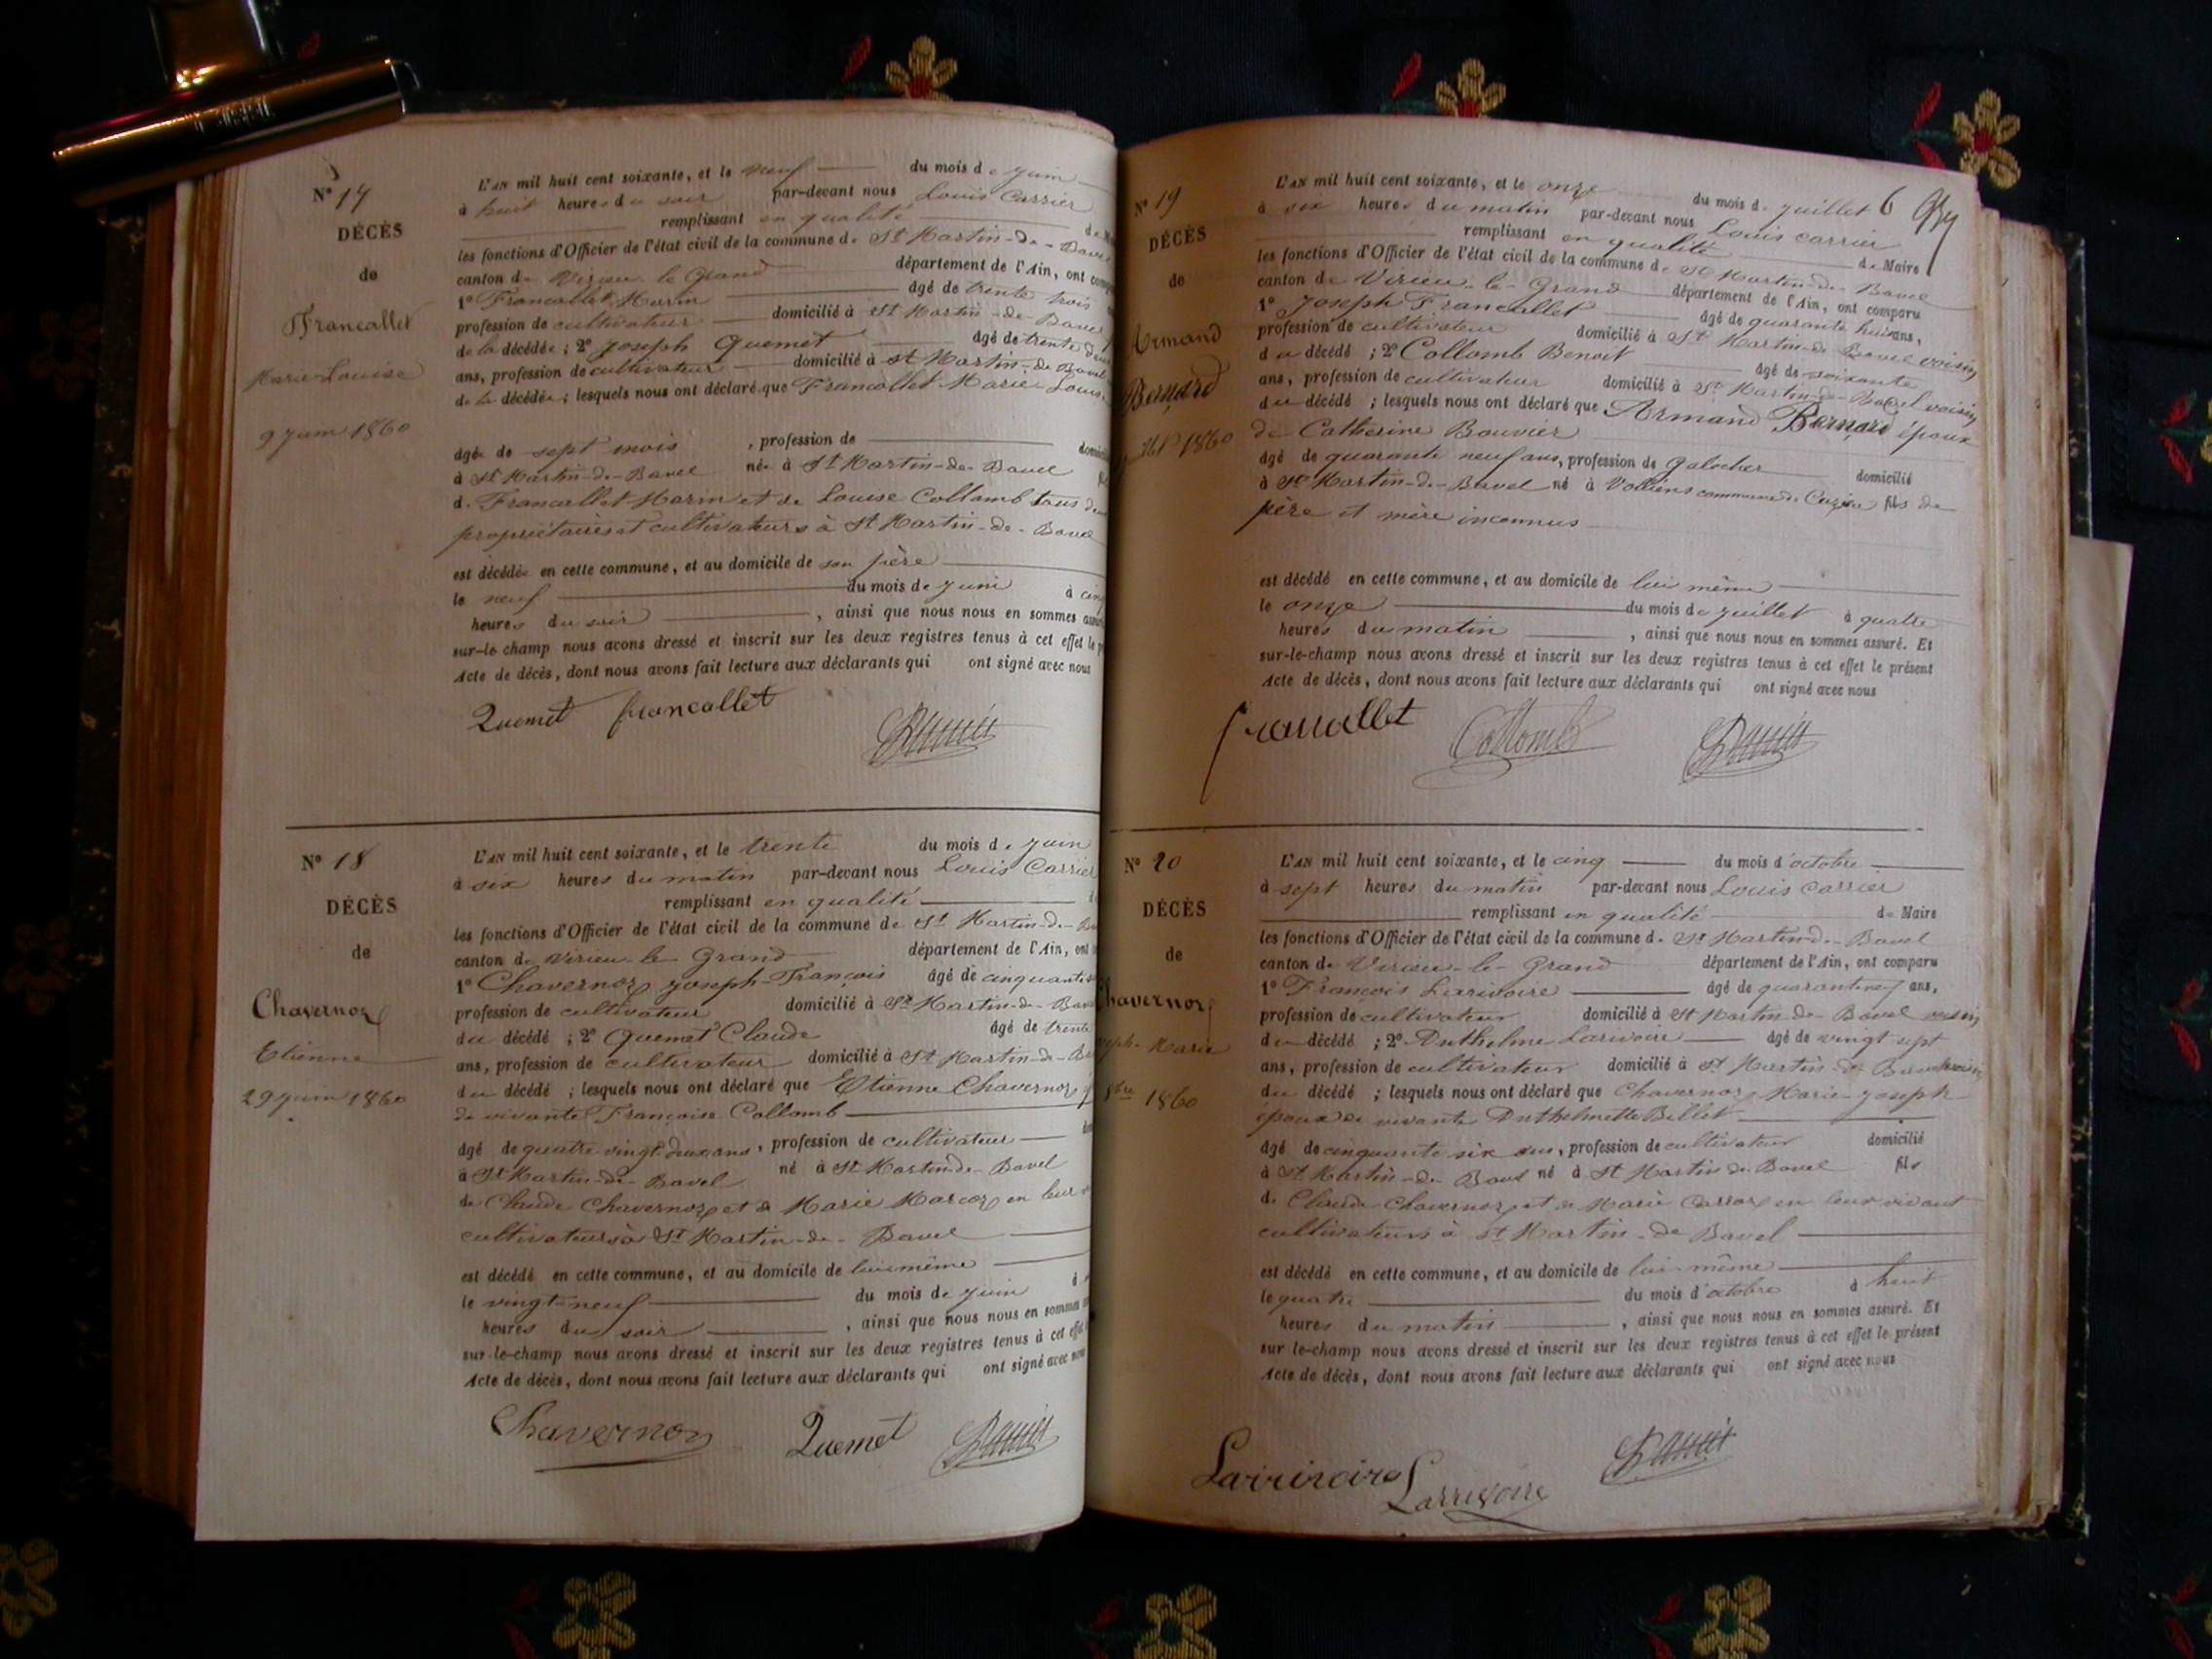 N° 17
DÉCÈS
de
Francallet
Marie Louise
9 juin 1860
L'AN mil huit cent soixante, et le neuf du mois de juin
à huit heures du soir par-devant nous Louis Carrier
remplissant en qualité de
les fonctions d'Officier de l'état civil de la commune de St Martin-de-Bavel
canton de Virieu le Grand département de l'Ain, ont
1° Francallet Marin âgé de trente trois
profession de cultivateur domicilié à St Martin-de-Bavel
de la décédée ; 2° Joseph Quemet âgé de trente
ans, profession de cultivateur domicilié à St Martin-de-Bavel
de la décédée ; lesquels nous ont déclaré que Francallet Marie Louise
âgée de sept mois , profession de
à St Martin-de-Bavel née à St Martin-de-Bavel
de Francallet Marin et de Louise Collomb tous
propriétaires et cultivateurs à St Martin-de-Bavel
est décédée en cette commune, et au domicile de son père
le neuf du mois de juin à cinq
heures du soir , ainsi que nous nous en sommes
sur-le-champ nous avons dressé et inscrit sur les deux registres tenus à cet effet le
Acte de décès, dont nous avons fait lecture aux déclarants qui ont signé avec nous
Quemet francallet
N° 18
DÉCÈS
de
Chavernoz
Etienne
29 juin 1860
L'AN mil huit cent soixante, et le trente du mois de juin
à six heures du matin par-devant nous Louis Carrier
remplissant en qualité
les fonctions d'Officier de l'état civil de la commune de St Martin-de-
canton de Virieu-le-Grand département de l'Ain, ont
1° Chavernoz Joseph-François âgé de cinquante
profession de cultivateur domicilié à St Martin-de-Bavel
du décédé ; 2° Quemet Claude âgé de trente
ans, profession de cultivateur domicilié à St Martin-de-
du décédé ; lesquels nous ont déclaré que Etienne Chavernoz
de vivante Françoise Collomb
âgé de quatre vingt deux ans , profession de cultivateur
à St Martin-de-Bavel né à St Martin-de-Bavel
de Claude Chavernoz et de Marie Marcoz en leur
cultivateurs à St Martin-de-Bavel
est décédé en cette commune, et au domicile de lui même
le vingt-neuf du mois de juin à
heures du soir , ainsi que nous nous en sommes
sur-le-champ nous avons dressé et inscrit sur les deux registres tenus à cet effet
Acte de décès, dont nous avons fait lecture aux déclarants qui ont signé avec nous
Chavernoz Quemet
N° 19
DÉCÈS
de
Armand
Bernard
1860
L'AN mil huit cent soixante, et le onze du mois de juillet 6
à six heures du matin par-devant nous Louis Carrier
remplissant en qualité de Maire
les fonctions d'Officier de l'état civil de la commune de St Martin-de-Bavel
canton de Virieu-le-Grand département de l'Ain, ont comparu
1° Joseph Francallet âgé de quarante huit ans,
profession de cultivateur domicilié à St Martin-de-Bavel voisin
du décédé ; 2° Collomb Benoit âgé de soixante
ans, profession de cultivateur domicilié à St Martin-de-Bavel voisin
du décédé ; lesquels nous ont déclaré que Armand Bernard époux
de Catherine Bouvier
âgé de quarante neuf ans, profession de Galocher domicilié
à St Martin-de-Bavel né à Volliens commune de Cuzieu fils de
père et mère inconnus
est décédé en cette commune, et au domicile de lui même
le onze du mois de juillet à quatre
heures du matin , ainsi que nous nous en sommes assuré. Et
sur-le-champ nous avons dressé et inscrit sur les deux registres tenus à cet effet le présent
Acte de décès, dont nous avons fait lecture aux déclarants qui ont signé avec nous
francallet Collomb
N° 20
DÉCÈS
de
Chavernoz
Marie
8bre 1860
L'AN mil huit cent soixante, et le cinq du mois d'octobre
à sept heures du matin par-devant nous Louis Carrier
remplissant en qualité de Maire
les fonctions d'Officier de l'état civil de la commune de St Martin-de-Bavel
canton de Virieu-le-Grand département de l'Ain, ont comparu
1° François Larivoire âgé de quarante neuf ans,
profession de cultivateur domicilié à St Martin-de-Bavel voisin
du décédé ; 2° Anthelme Larivoire âgé de vingt sept
ans, profession de cultivateur domicilié à St Martin-de-Bavel voisin
du décédé ; lesquels nous ont déclaré que Chavernoz Marie-Joseph
époux de vivante Anthelmette Billet
âgé de cinquante six ans, profession de cultivateur domicilié
à St Martin-de-Bavel né à St Martin-de-Bavel fils
de Claude Chavernoz et de Marie Carroz en leur vivant
cultivateurs à St Martin-de-Bavel
est décédé en cette commune, et au domicile de lui-même
le quatre du mois d'octobre à huit
heures du matin , ainsi que nous nous en sommes assuré. Et
sur-le-champ nous avons dressé et inscrit sur les deux registres tenus à cet effet le présent
Acte de décès, dont nous avons fait lecture aux déclarants qui ont signé avec nous
Larrivoire